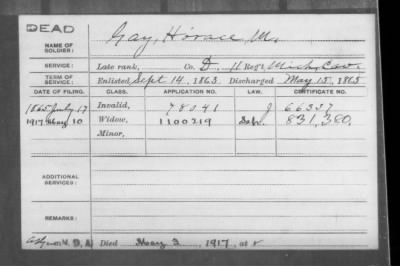 DEAD
NAME OF SOLDIER: Gay, Horace M.
SERVICE: Late rank, Co. D, 11 Reg't Mich. Cav.
TERM OF SERVICE: Enlisted Sept 14, 1863 Discharged May 15, 1865
DATE OF FILING. CLASS. APPLICATION NO. LAW. CERTIFICATE NO.
1865 July 17 Invalid, 78041 66337
1917 May 10 Widow, 1100219 831,380.
Minor,
ADDITIONAL SERVICES:
REMARKS:
Died May 3, 1917, at